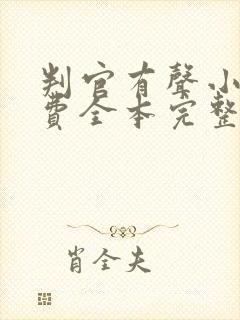 判官有聲小
費全本完整
肖全夫